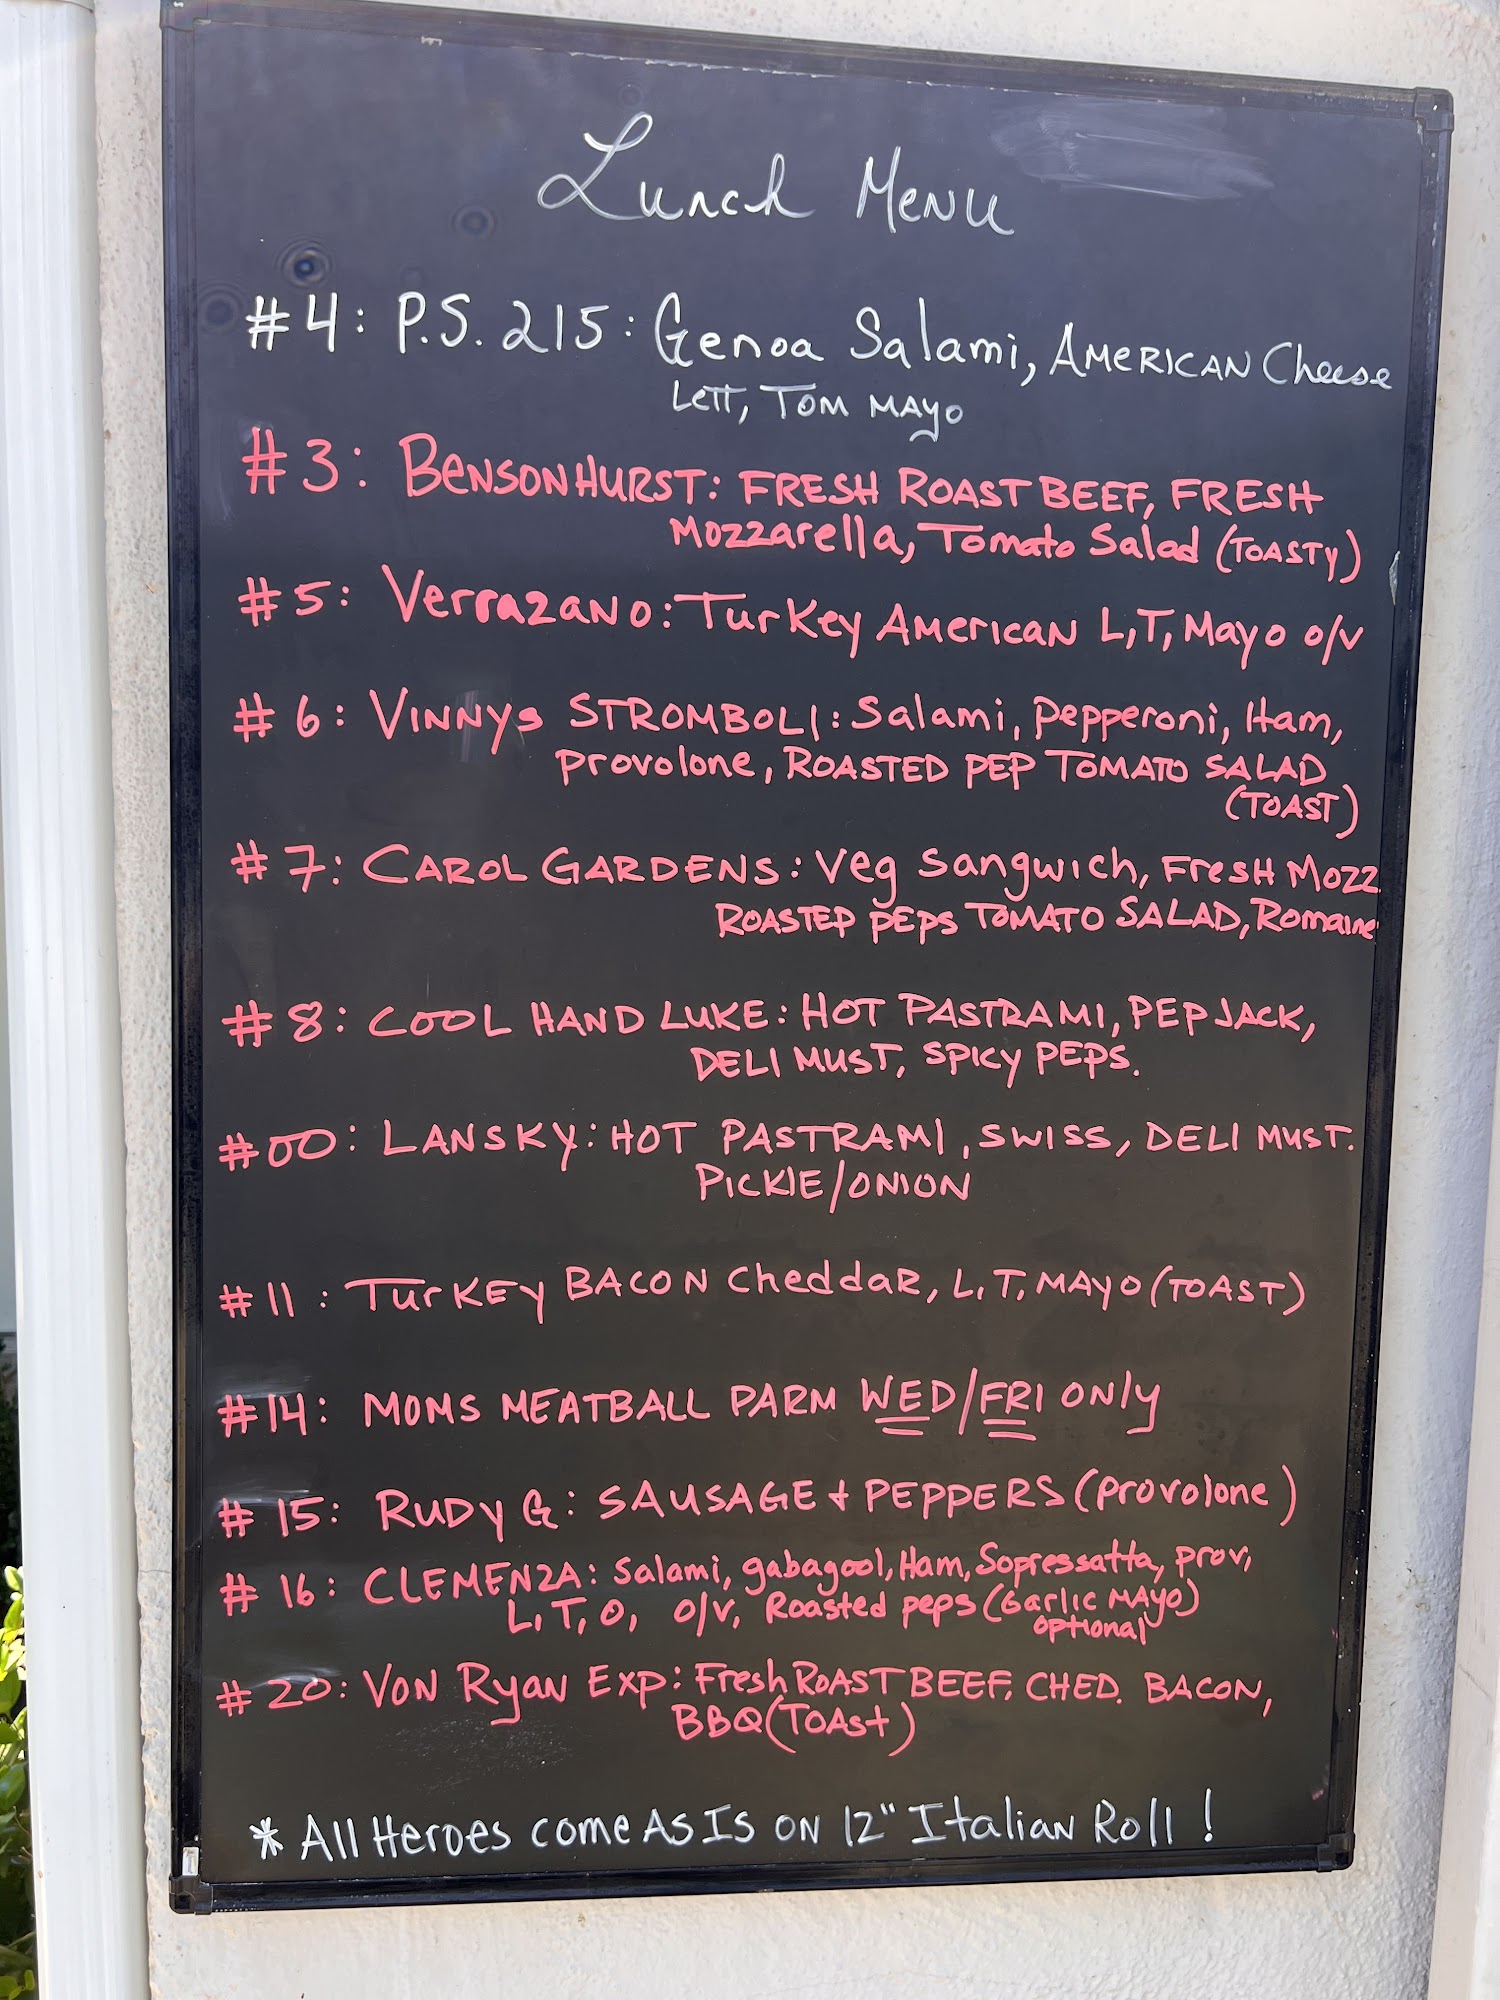 Lunch Menu
#4: P.S. 215: Genoa Salami, American Cheese
Lett, Tom Mayo
#3: Bensonhurst: FRESH ROAST BEEF, FRESH
Mozzarella, Tomato Salad (TOASTY)
#5: Verrazano: Turkey American L, T, Mayo o/v
#6: Vinnys STROMBOLI: Salami, Pepperoni, Ham,
Provolone, ROASTED PEP TOMATO SALAD
(TOAST)
#7: CAROL GARDENS: Veg Sangwich, Fresh Mozz
ROASTED PEPS TOMATO SALAD, Romaine
#8: COOL HAND LUKE: HOT PASTRAMI, PEPJACK,
DELI MUST, SPICY PEPS.
#00: LANSKY: HOT PASTRAMI, SWISS, DELI MUST.
PICKLE/ONION
#11: Turkey BACON Cheddar, L, T, MAYO (TOAST)
#14: MOMS MEATBALL PARM WED/FRI ONLY
#15: RUDY G: SAUSAGE + PEPPERS (Provolone)
#16: CLEMENZA: Salami, gabagool, Ham, Sopressatta, Prov,
L, T, O, O/V, Roasted peps (Garlic MAYO)
optional
#20: VON Ryan Exp: Fresh ROAST BEEF, CHED. BACON,
BBQ (TOAST)
* All Heroes come As Is on 12" Italian Roll!